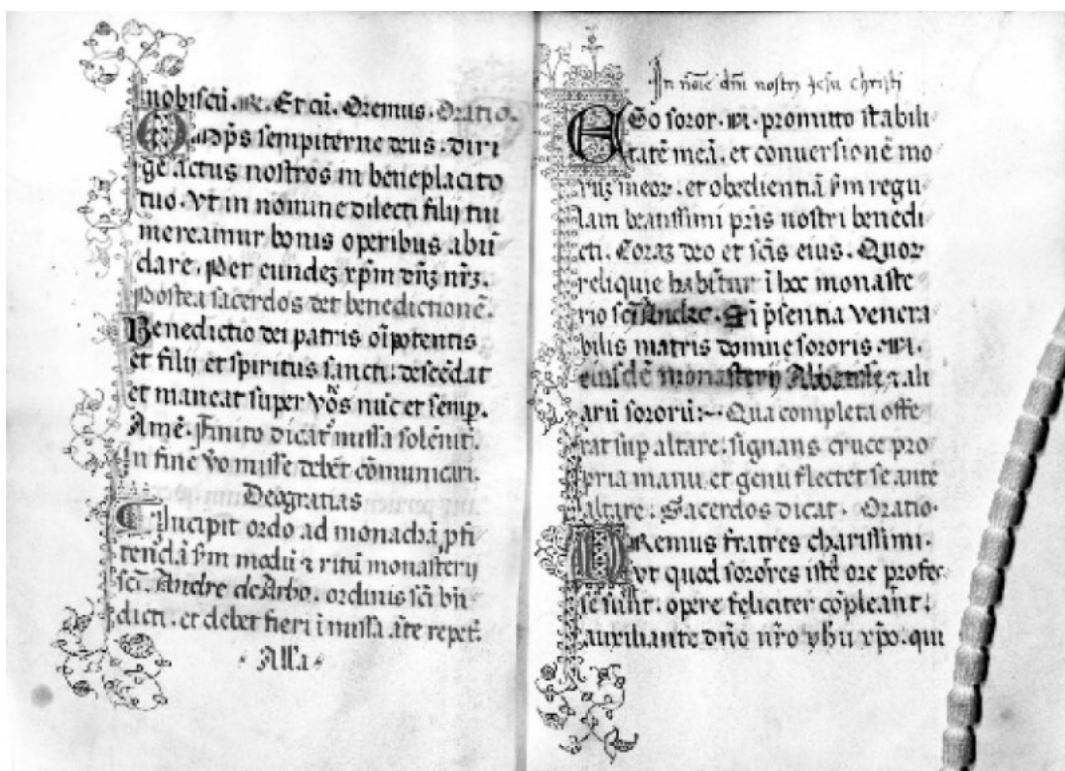 nobiscũ. ꝶ. Et cũ. Oremus. Oratio.
Omp̄s sempiterne deus. diri
ge actus nostros in beneplacito
tuo. Vt in nomine dilecti filij tui
mereamur bonis operibus abũ
dare. Per eundeʒ xp̄m dñʒ nr̄ʒ.
Postea sacerdos det benedictionẽ.
Benedictio dei patris oı̃potentis
et filij et spiritus sancti. descẽdat
et maneat super vos nũc et semp̱.
Amẽ. Finito dicat̃ missa solẽnit̃.
In fine v̊o misse debẽt cõmunicari.
Deogratias
Incipit ordo ad monachã ꝓfi
tendã s̃m modũ ⁊ ritũ monasterij
sc̃i. Andre de Arbo. ordinis sc̃i bñ
dicti. et debet fieri ĩ missa ãte repet̃.
Alľa
In noı̃e dñi nostrj Jesu Christi
EGo soror. .N. promitto stabili
tatẽ meã. et conuersionẽ mo
rũʒ meoꝝ. et obedientiã s̃m regu
lam beatissimi p̃ris nostri benedi
cti. Coraʒ deo et sc̃is eius. Quoꝝ
reliquie habẽtur ĩ hoc monaste
rio sc̃i Andree. Et ĩ p̃sentia venera
bilis matris domne sororis .N.
eiusdẽ monasterij Abbatisse, ⁊ ali
arũ sororũ:~ Qua completa offe
rat sup̱ altare. signans cruce pro
pria manu. et genu flectet se ante
altare. Sacerdos dicat. Oratio.
ORemus fratres charissimi.
vt quod sorores iste ore ꝓfes
se sunt. opere feliciter cõpleant.
auxiliante dño nr̃o yħu xp̃o. qui